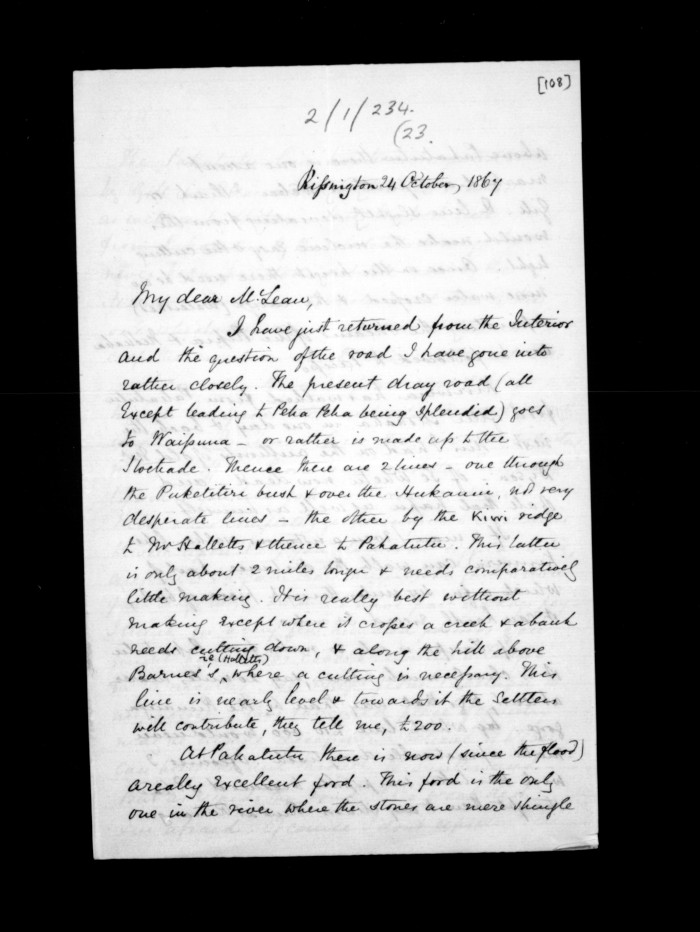 [108]
2/1/234.
(23.
Rissington 24 October, 1867
My dear McLean,
I have just returned from the Interior
and the question of the road I have gone into
rather closely. The present dray road (all
except leading to Peha Peha being splendid) goes
to Waipuna – or rather is made up to the
Stockade. Thence there are 2 lines – one through
the Puketitiri bush & over the Hukanui, not very
desperate lines – the other by the Kiwi ridge
to Mr Halletts & thence to Pakatutu. This latter
is only about 2 miles longer & needs comparatively
little making. It is really best without
making except where it crosses a creek & a bank
needs cutting down, & along the hill above
re (Halletts)
Barnes's, where a cutting is necessary. This
line is nearly level & towards it the settlers
will contribute, they tell me, £200.
At Pakatutu there is now (since the flood)
a really excellent ford. This ford is the only
one in the river where the stones are mere shingle